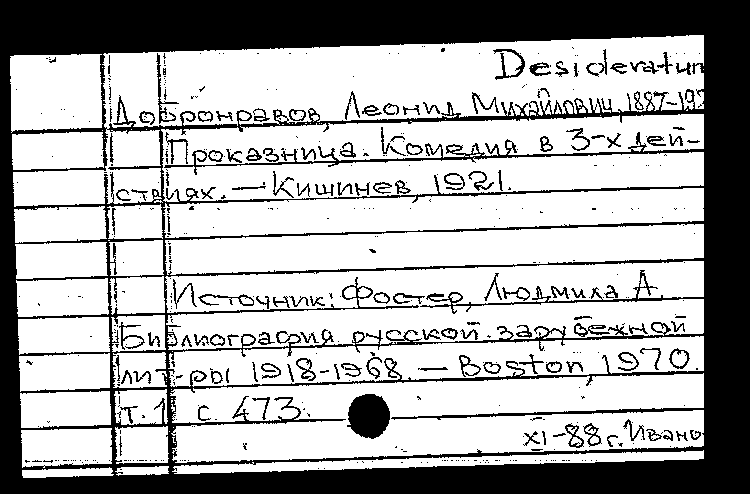 Desideratum
Добронравов, Леонид Михайлович, 1887-192
Проказница. Комедия в 3-х дей-
ствиях. — Кишинев, 1921.
Источник: Фостер, Людмила А.
Библиография русской зарубежной
лит-ры 1918-1968. — Boston, 1970.
т. 1 с. 473.
XI-88 г. Ивано